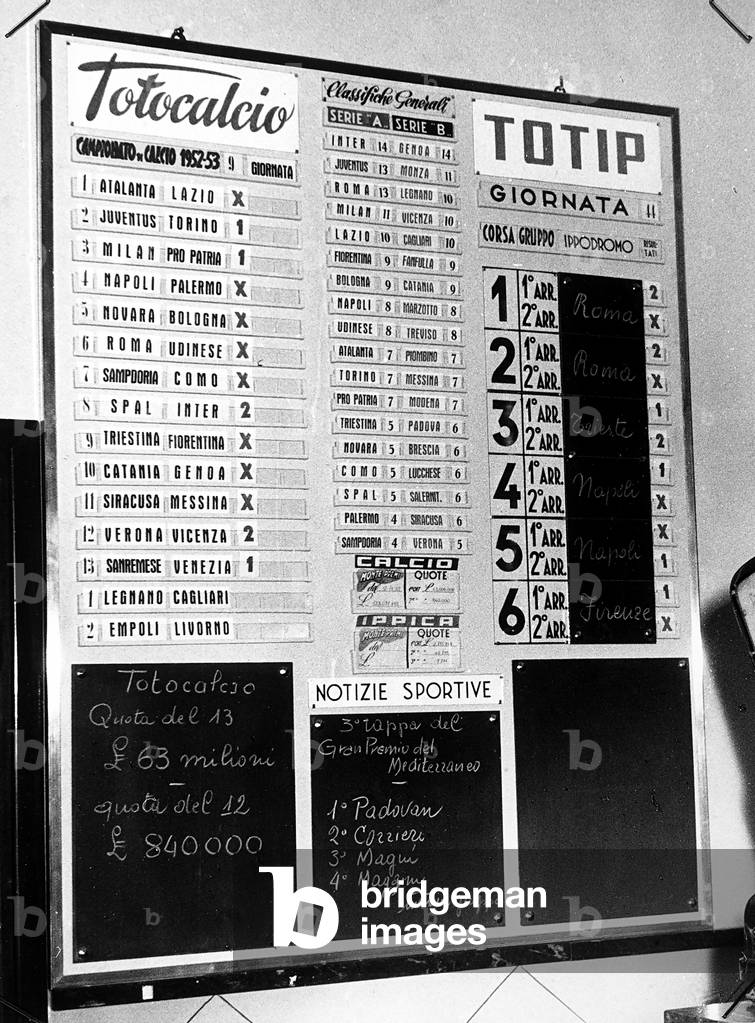 Totocalcio
CAMPIONATO DI CALCIO 1952-53 9 GIORNATA
1 ATALANTA LAZIO X
2 JUVENTUS TORINO 1
3 MILAN PRO PATRIA 1
4 NAPOLI PALERMO X
5 NOVARA BOLOGNA X
6 ROMA UDINESE X
7 SAMPDORIA COMO X
8 SPAL INTER 2
9 TRIESTINA FIORENTINA X
10 CATANIA GENOA X
11 SIRACUSA MESSINA X
12 VERONA VICENZA 2
13 SANREMESE VENEZIA 1
1 LEGNANO CAGLIARI
2 EMPOLI LIVORNO
Totocalcio
Quota del 13
£ 63 milioni
quota del 12
£ 840000
Classifiche Generali
SERIE "A" SERIE "B"
INTER 14 GENOA 14
JUVENTUS 13 MONZA 11
ROMA 13 LEGNANO 10
MILAN 11 VICENZA 10
LAZIO 10 CAGLIARI 10
FIORENTINA 9 FANFULLA 9
BOLOGNA 9 CATANIA 9
NAPOLI 8 MARZOTTO 8
UDINESE 8 TREVISO 8
ATALANTA 7 PIOMBINO 7
TORINO 7 MESSINA 7
PRO PATRIA 7 MODENA 7
TRIESTINA 5 PADOVA 6
NOVARA 5 BRESCIA 6
COMO 5 LUCCHESE 6
SPAL 5 SALERNIT. 6
PALERMO 4 SIRACUSA 6
SAMPDORIA 4 VERONA 5
CALCIO
MONTE PREMI QUOTE
IPPICA
MONTE PREMI QUOTE
NOTIZIE SPORTIVE
3ª tappa del
Gran Premio del
Mediterraneo
1° Padovan
2° Corrieri
3° Magni
4°
TOTIP
GIORNATA 44
CORSA GRUPPO IPPODROMO RISULTATI
1 1° ARR. Roma 2
2° ARR. X
2 1° ARR. Roma 2
2° ARR. X
3 1° ARR. Trieste 1
2° ARR. 2
4 1° ARR. Napoli 1
2° ARR. X
5 1° ARR. Napoli X
2° ARR. 1
6 1° ARR. Firenze 1
2° ARR. X
b bridgeman
images